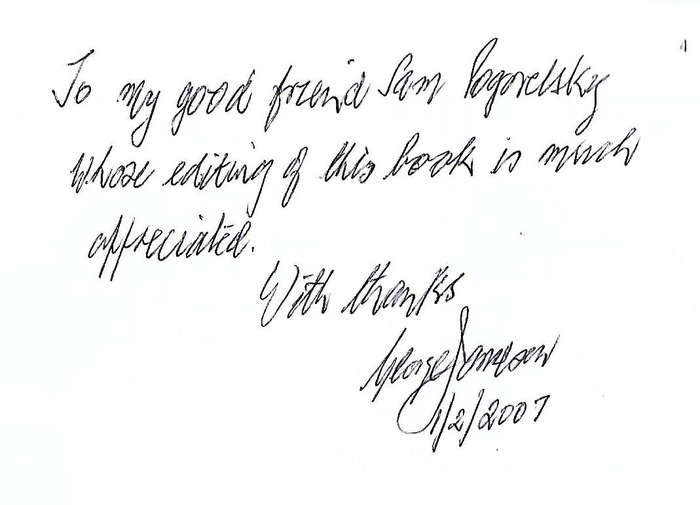 To my good friend Sam Pogorelsky
whose editing of this book is much
appreciated.
With thanks
George
1/2/2007